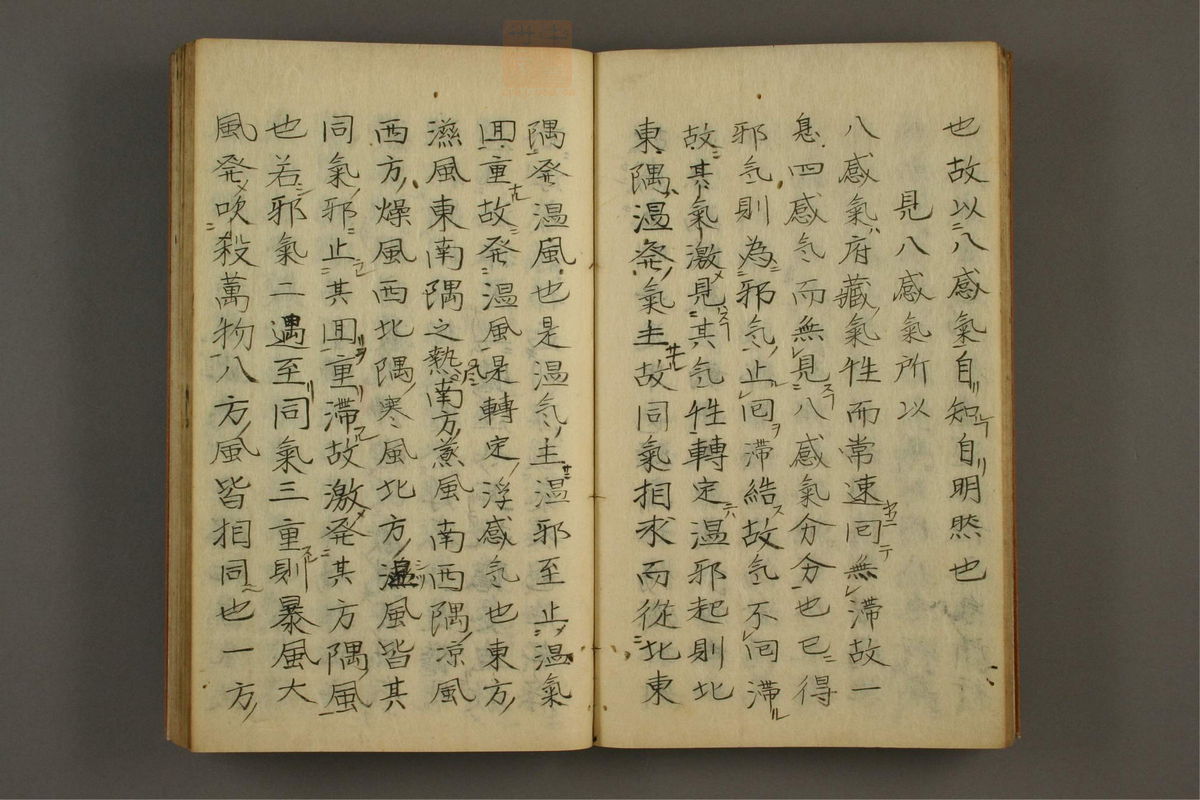 也故以八感氣自知自明然也
見八感氣所以
八感氣府藏氣牲而常速回無滞故一
息四感気而無見八感氣分分也已得
邪気則為邪気止回滞結故気不回滞
故其氣激見其気牲轉定温邪起則北
東隅温発氣主故同氣相求而從北東
隅発温風也是温気主温邪至止温氣
囬重故発温風是轉定浮感気也東方
濕風東南隅之熱風南方蒸風南西隅凉風
西方燥風西北隅寒風北方湿風皆其
同氣邪止其囬重滞故激発其方隅風
也若邪氣二遇至同氣三重則暴風大
風発吹殺萬物八方風皆相同也一方